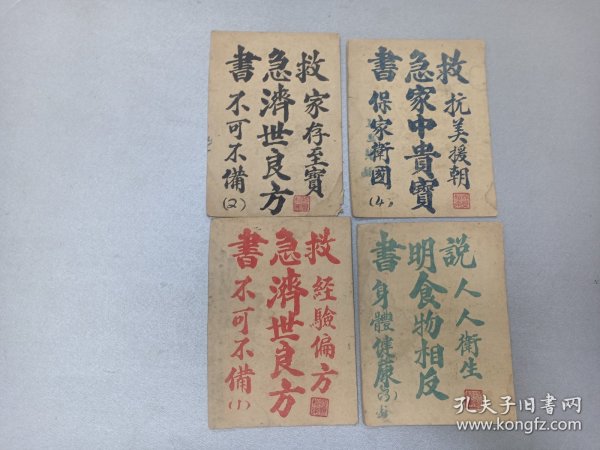 救急書
家存至寶
濟世良方
不可不備(2)
救急書
抗美援朝
家中貴寶
保家衛國(4)
救急書
経驗偏方
濟世良方
不可不備(1)
説明書
人人衛生
食物相反
身體健康(3)
孔夫子旧書网
www.kongfz.com